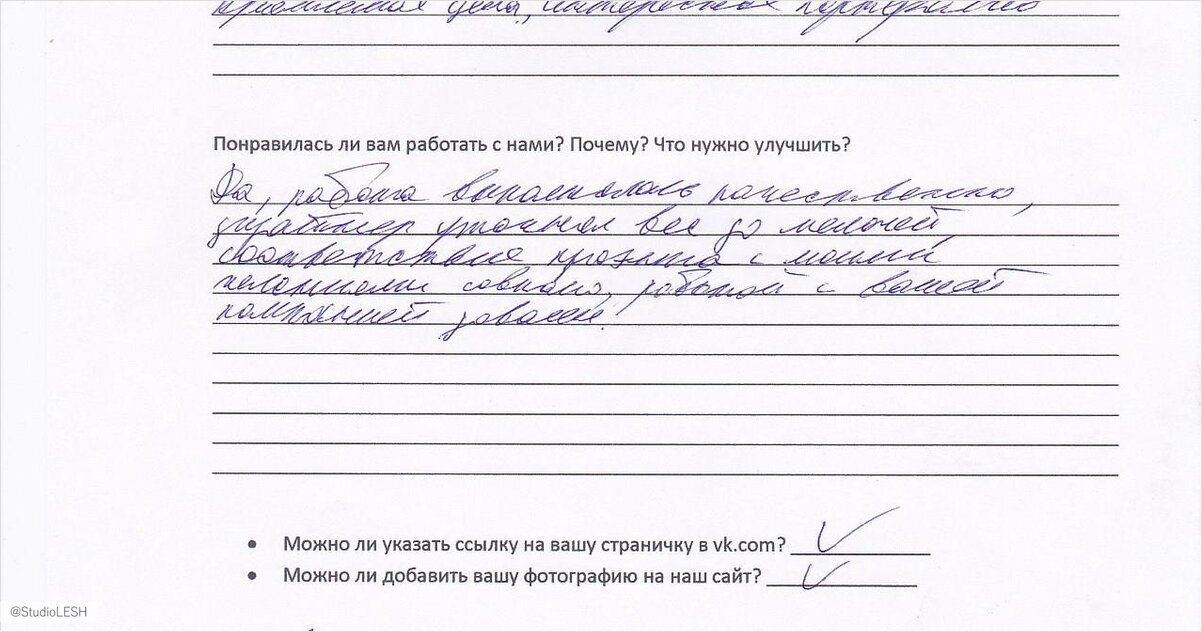 приемлемая цена, интересная портфолио
Понравилась ли вам работать с нами? Почему? Что нужно улучшить?
Да, работа выполнялась качественно,
дизайнер уточнял все до мелочей,
соответствие проекта с моими
желаниями совпало, работой с вашей
компанией
Можно ли указать ссылку на вашу страничку в vk.com?
Можно ли добавить вашу фотографию на наш сайт?
@StudioLESH